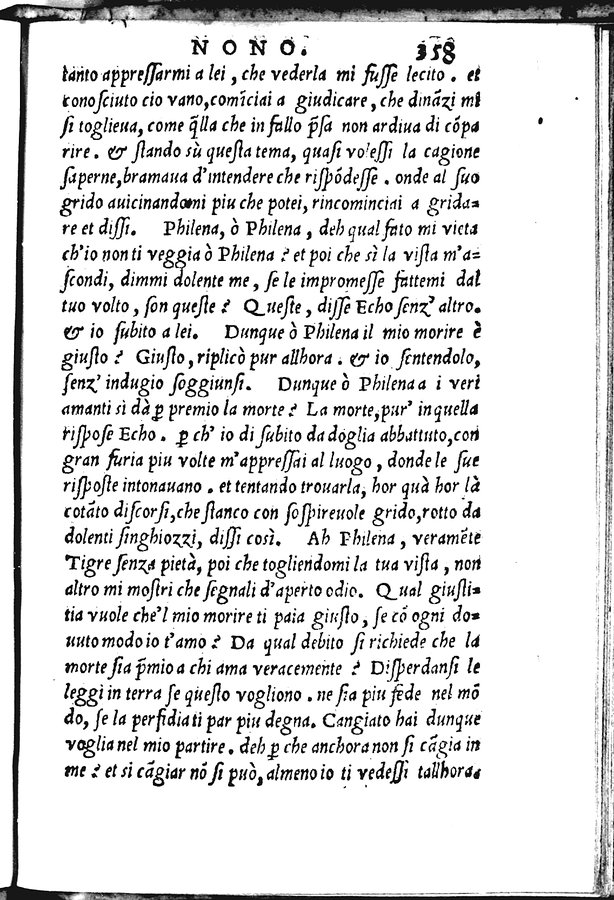 NONO. 358
tanto appreſſarmi a lei, che vederla mi fuſſe lecito. et
conoſciuto cio vano, comīciai a giudicare, che dināzi mi
ſi toglieua, come q̄lla che in fallo p̄ſa non ardiua di cōpa
rire. & ſtando sù queſta tema, quaſi voleſſi la cagione
ſaperne, bramaua d'intendere che riſpōdeſſe. onde al ſuo
grido auicinandomi piu che potei, rincominciai a grida-
re et diſſi. Philena, ò Philena, deh qual fato mi vieta
ch'io non ti veggia ò Philena? et poi che sì la viſta m'a-
ſcondi, dimmi dolente me, ſe le impromeſſe fattemi dal
tuo volto, ſon queſte? Queſte, diſſe Echo ſenz' altro.
& io ſubito a lei. Dunque ò Philena il mio morire è
giuſto? Giuſto, riplicò pur allhora. & io ſentendolo,
ſenz' indugio ſoggiunſi. Dunque ò Philena a i veri
amanti sì dà ꝑ premio la morte? La morte, pur' in quella
riſpoſe Echo. ꝑ ch' io di ſubito da doglia abbattuto, con
gran furia piu volte m'appreſſai al luogo, donde le ſue
riſpoſte intonauano. et tentando trouarla, hor quà hor là
cotāto diſcorſi, che ſtanco con ſoſpireuole grido, rotto da
dolenti ſinghiozzi, diſſi così. Ah Philena, veramēte
Tigre ſenza pietà, poi che togliendomi la tua viſta, non
altro mi moſtri che ſegnali d'aperto odio. Qual giuſti-
tia vuole che'l mio morire ti paia giuſto, ſe cō ogni do-
uuto modo io t'amo? Da qual debito ſi richiede che la
morte ſia p̄mio a chi ama veracemente? Diſperdanſi le
leggi in terra ſe queſto vogliono. ne ſia piu fede nel mō
do, ſe la perfidia ti par piu degna. Cangiato hai dunque
voglia nel mio partire. deh ꝑ che anchora non ſi cāgia in
me? et si cāgiar nō ſi può, almeno io ti vedeſſi tallhora.